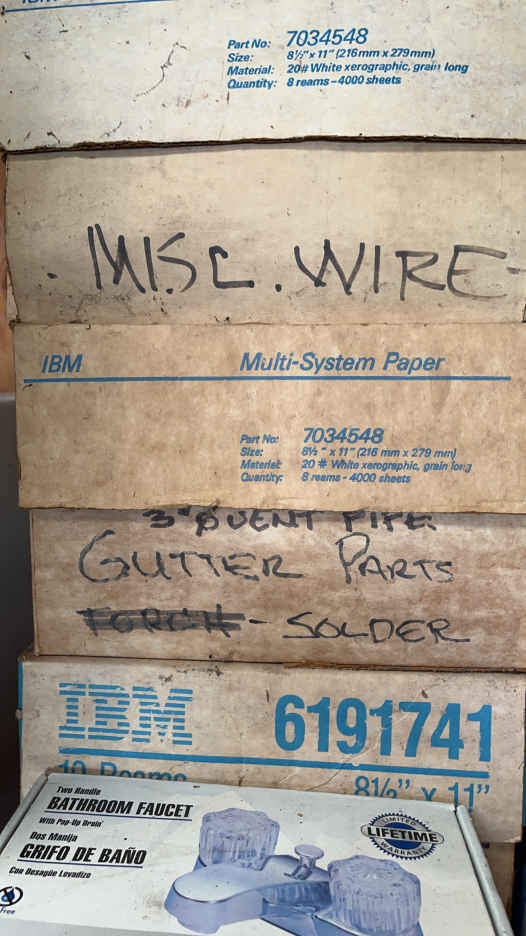 IBM
Part No: 7034548
Size: 8½" x 11" (216mm x 279mm)
Material: 20# White xerographic, grain long
Quantity: 8 reams - 4000 sheets
. MISC. WIRE-
IBM Multi-System Paper
Part No: 7034548
Size: 8½ " x 11" (216 mm x 279 mm)
Material: 20 # White xerographic, grain long
Quantity: 8 reams - 4000 sheets
3"ø VENT PIPE
GUTTER PARTS
TORCH - SOLDER
IBM 6191741
10 Reams 8½" x 11"
Two Handle
BATHROOM FAUCET
With Pop-Up Drain
Dos Manija
GRIFO DE BAÑO
Con Desagüe Levadizo
LIMITED
LIFETIME
WARRANTY
Free